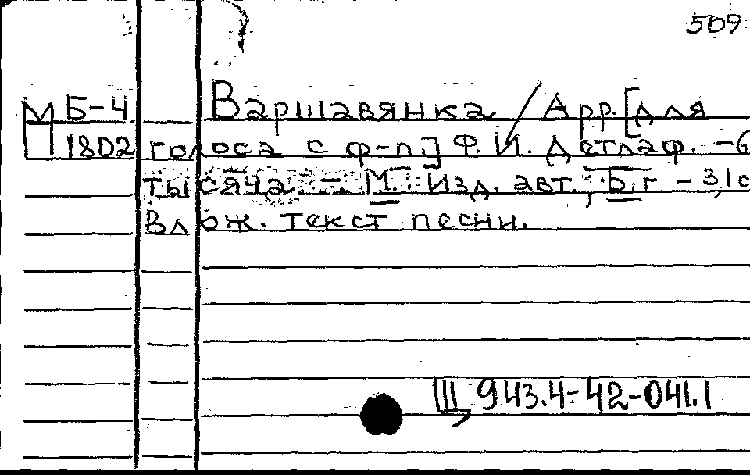 509
М Б-4 Варшавянка / Арр. [для
1802 голоса с ф-п] Ф. И. Детлаф. - 6
тысяча. - М. Изд. авт., Б.г - 3, 1 с
Влож. текст песни.
Щ 943.4-42-041.1